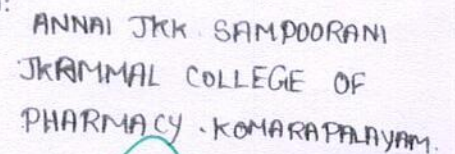 ANNAI JKK SAMPOORANI
JKAMMAL COLLEGE OF
PHARMACY . KOMARAPALAYAM.